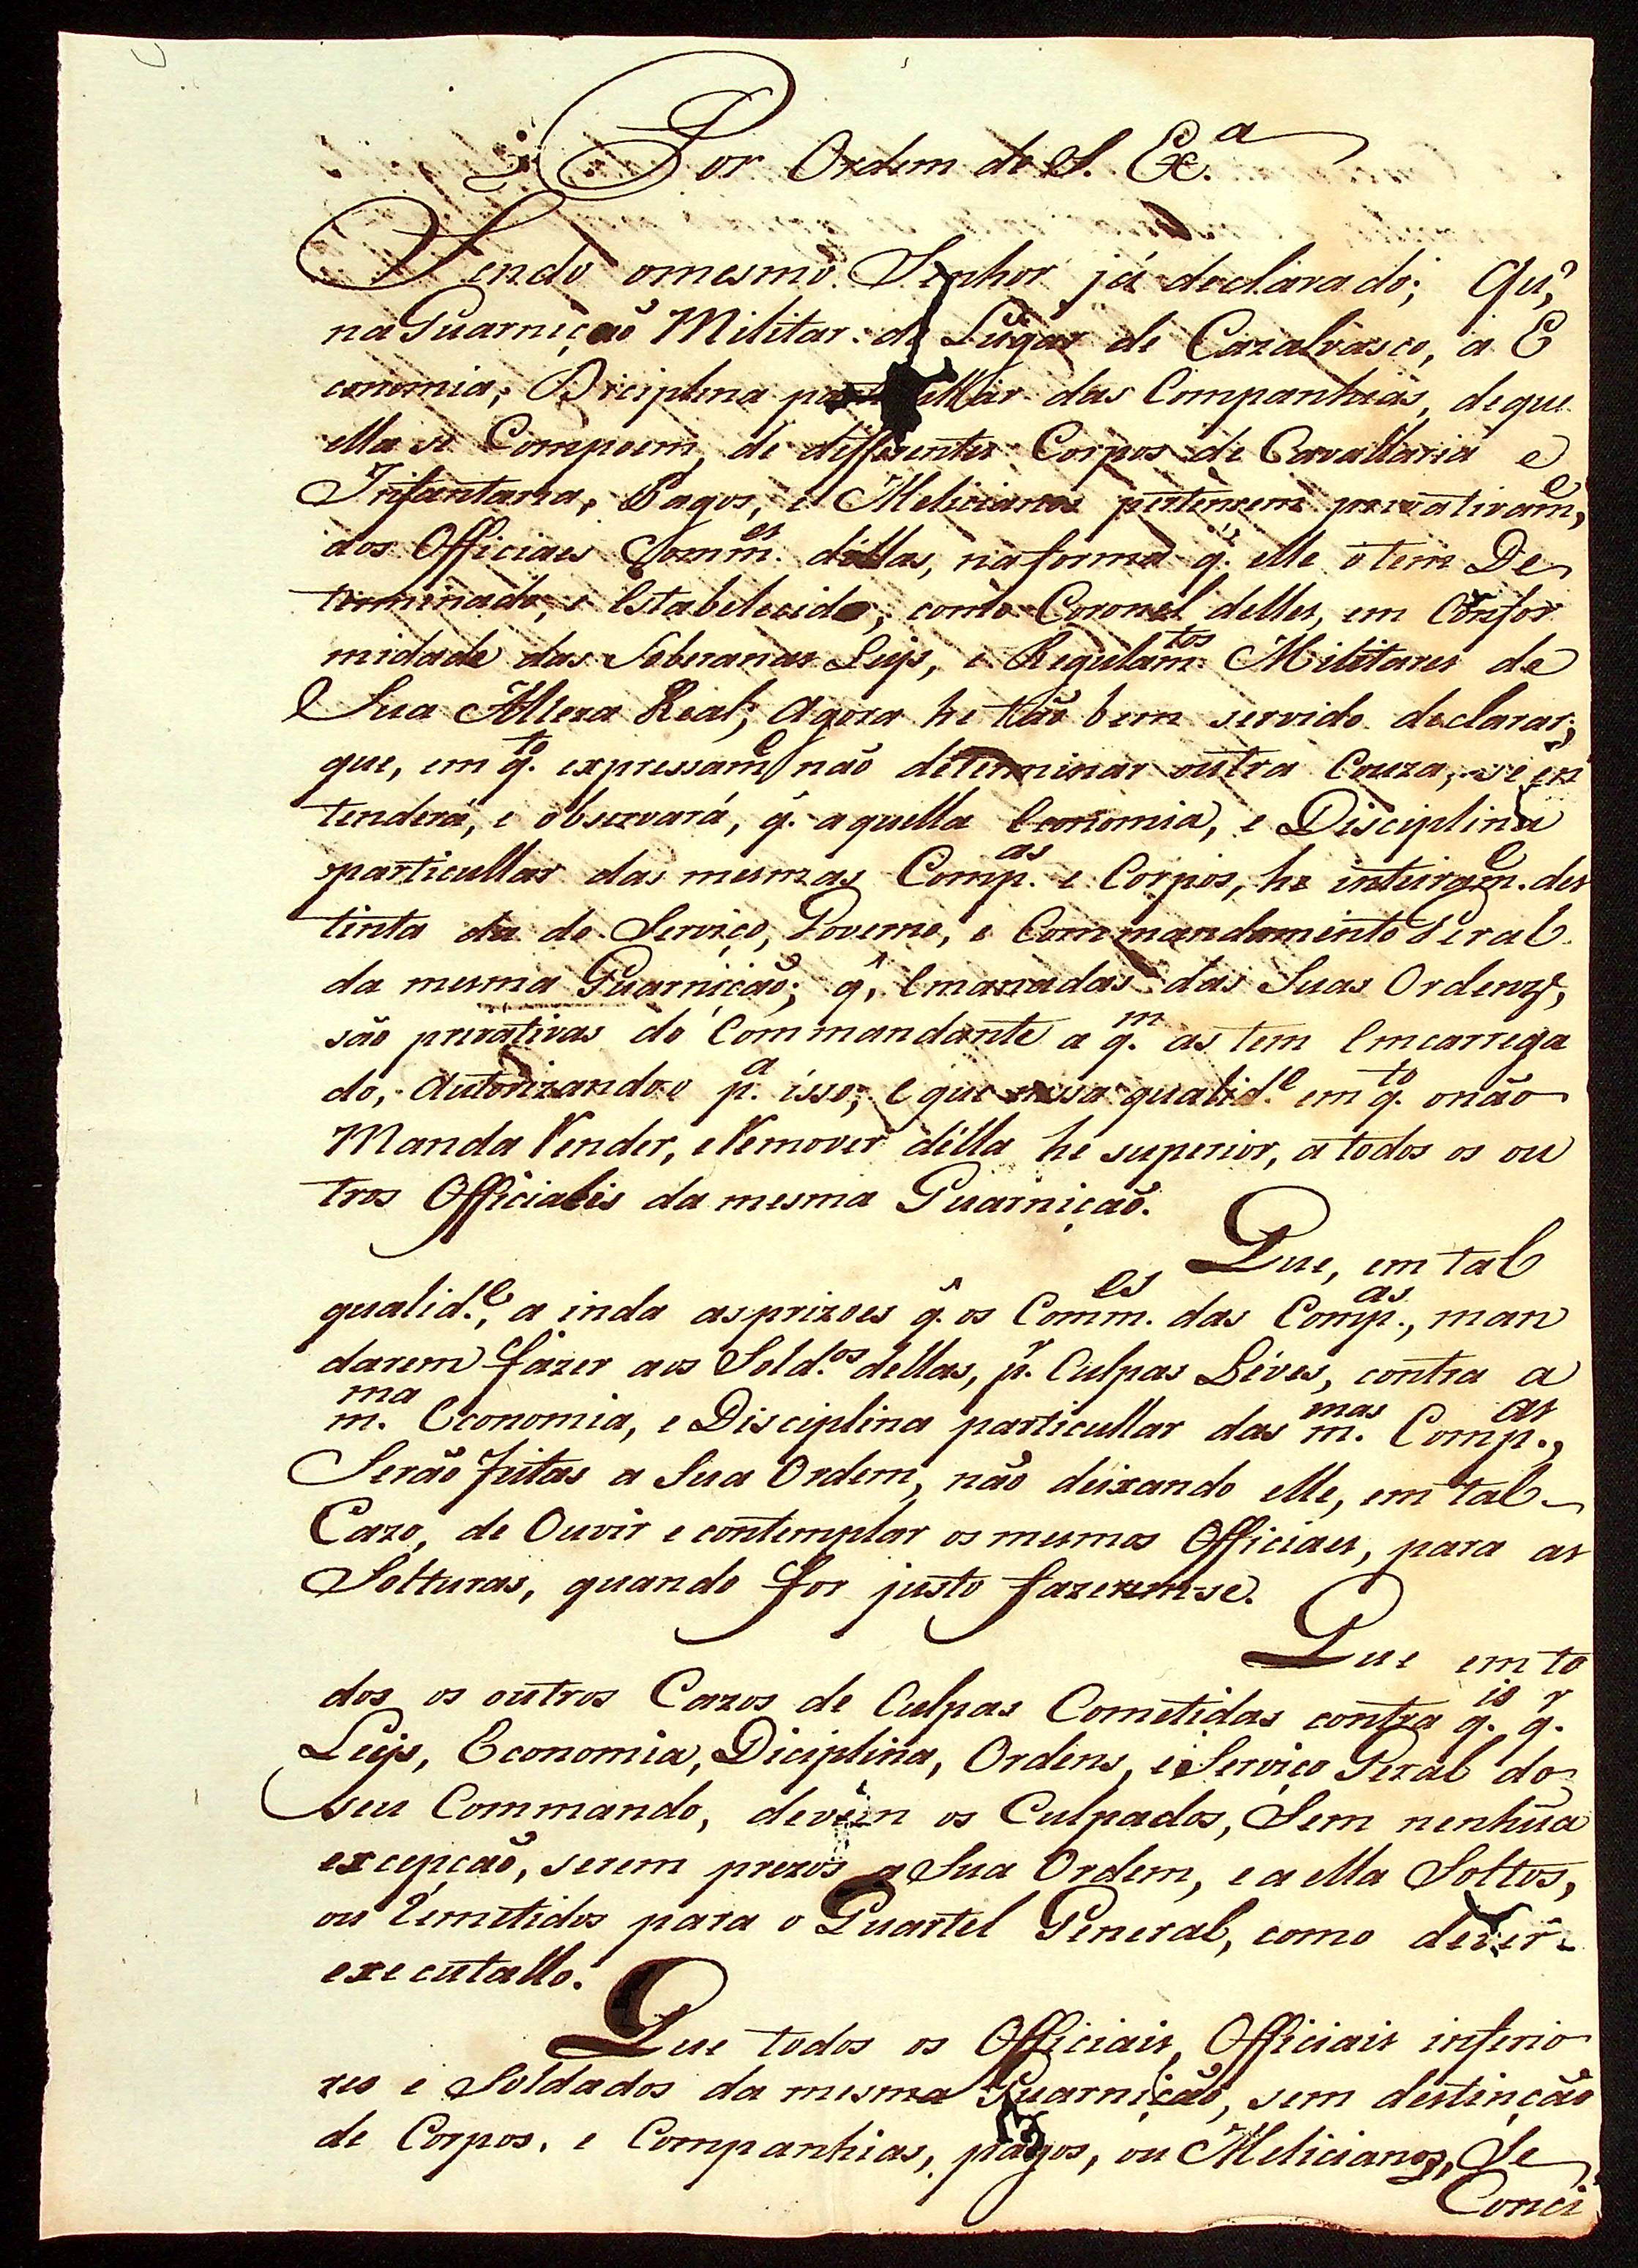 Por Ordem de S. Ex.ª
Tendo omesmo Senhor já declarado; Qu'
na Guarnição Militar do Lugar de Cazalvasco, a E
conomia, Diciplina particullar das Companhias, deque
ella se Compoem, de differentes Corpos de Cavallaria e
Infantaria, Pagos, e Melicianos pertensem privativam.e,
aos Officiaes Comm.es déllas, naforma q̃. elle otem De
terminado, e Estabelecido, como Coronel delles, em Confor
midade das Soberanas Leys, e Regulam.tos Militares de
Sua Alteza Real; Agora he tão bem servido declarar;
que, em q.to expressam.e não determinar outra Couza, se en
tenderá, e observará, q̃. aquella Economia, e Disciplina
particullar das mesmas Comp.as e Corpos, he inteiram.e des
tinta da do Serviço, Governo, e Commandamento Geral
da mesma Guarnição; q̃, Emanadas das Suas Ordenz,
são privativas do Commandante a q.m as tem Emcarrega
do, Autorizando-o p.a isso; E que nessa qualid.e em q.to onão
Manda Render, eRemover délla he superior, a todos os ou
tros Officiaeis da mesma Guarnição.
Que, em tal
qualid.e, a inda asprizoes q̃. os Comm.es das Comp.as, man
darem fazer aos Sold.os dellas, p.r Culpas Léves, contra a
m.ma Economia, e Disciplina particullar das m.mas Comp.as,
Serão feitas a Sua Ordem, não deixando elle, em tal
Cazo, de Ouvir e contemplar os mesmos Officiaes, para as
Solturas, quando for justo fazerem-se.
Que em to
dos os outros Cazos de Culpas Cometidas contra q.is q.r
Leys, Economia, Diciplina, Ordens, e Serviço Geral do
seu Commando, devêm os Culpados, Sem nenhũa
excepção, serem prezos a Sua Ordem, e a ella Soltos,
ou Remetidos para o Quartel General, como dever
executallo.
Que todos os Officiais, Officiais inferio
res e Soldados da mesma Guarnição, sem destinção
de Corpos, e Companhias, pagos, ou Melicianos, Se
Conci